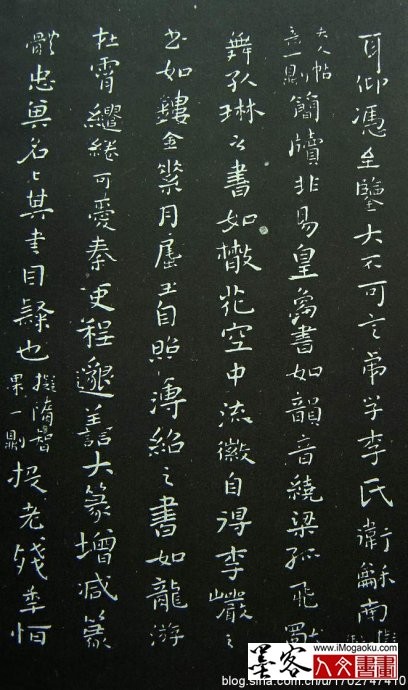 耳仰憑至鑒大不可言弟子李氏衛龢南
夫人帖
意一則
簡牘非易皇象書如韻音繞梁孤飛獨
舞孔琳之書如散花空中流徽自得李巖之
書如鏤金素月屈玉自照薄紹之書如龍游
在霄繾綣可愛秦吏程邈善大篆增減篆
體名之其書曰隸也
擬隋智
果一則
投老殘年恒
墨客
www.iMogaoku.com
blog.sina.com.cn/u/1702747410